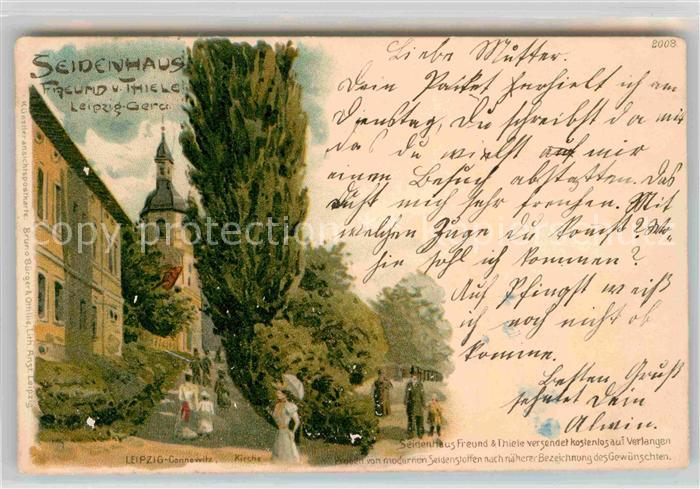 2008
SEIDENHAUS
FREUND U. THIELE
Leipzig-Gera
Künstleransichtspostkarte Bruno Bürger & Ottillie, Lith. Anst. Leipzig
Liebe Mutter.
Dein Packet herhielt ich am
Dienstag, Du schreibst da mir
das du willst auf mir
einen Besuch abstatten. Das
duht mich sehr freuhen. Mit
welchen Zuge du komst
hie soll ich kommen?
Auf Pfingst weiß
ich noch nicht ob
komme.
Besten Gruß
sehntet Dein
Alwin.
copyright protection
LEIPZIG-Connewitz, Kirche
Seidenhaus Freund & Thiele versendet kostenlos auf Verlangen
Proben von modernen Seidenstoffen nach näherer Bezeichnung des Gewünschten.